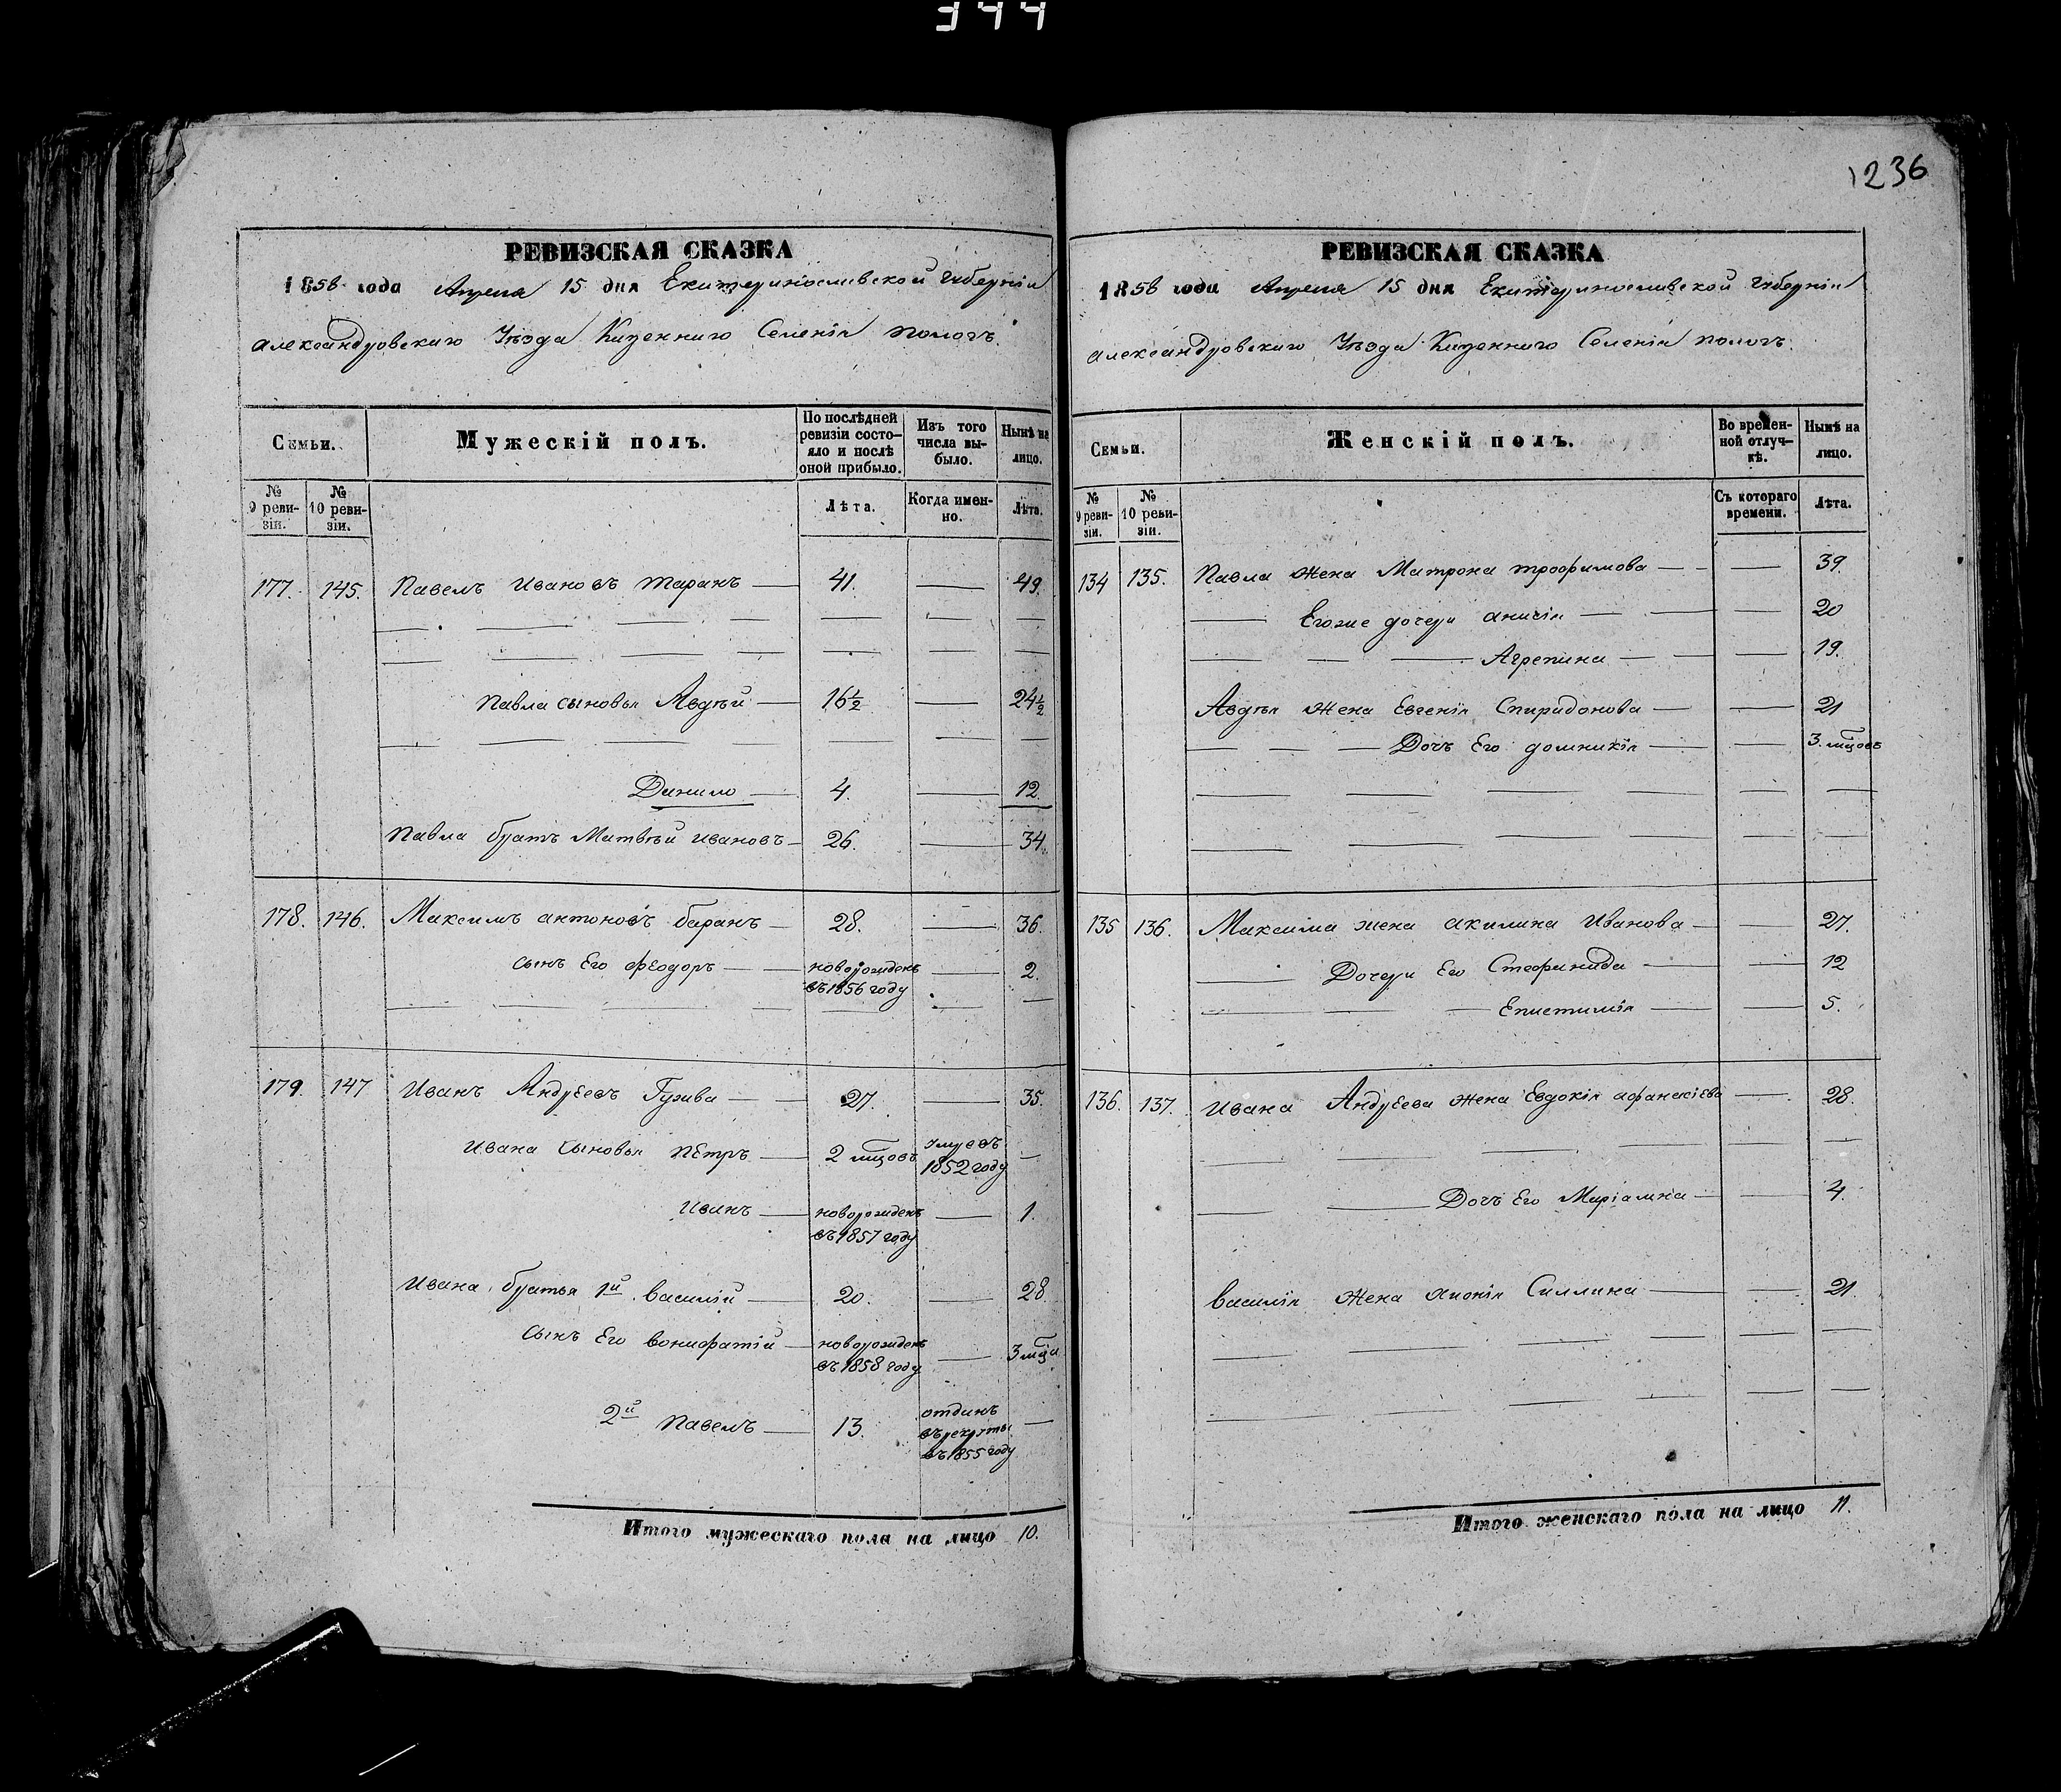 344
1236
РЕВИЗСКАЯ СКАЗКА
1858 года Апреля 15 дня Екатеринославской губерніи
Александровскаго Уѣзда Казеннаго Селенія Пологъ.
Семьи.
Мужескій полъ.
По послѣдней ревизіи состо-яло и послѣ оной прибыло.
Изъ того числа вы-было.
Нынѣ на лицо.
№ 9 реви-зіи.
№ 10 реви-зіи.
Лѣта.
Когда имен-но.
Лѣта.
177. 145. Павелъ Ивановъ Таранъ — 41. — 49.
Павла сыновья Авдѣй — 16½ — 24½
Данило — 4. — 12.
Павла братъ Матвѣй Ивановъ — 26. — 34.
178. 146. Максимъ Антоновъ Баранъ — 28. — 36.
сынъ Его Феодоръ — новорожденъ — 2.
въ 1856 году
179. 147 Иванъ Андреевъ Гужва — 27. — 35.
Ивана сыновья Петръ — 2 мцовъ умре въ —
1852 году
Иванъ — новорожденъ — 1.
въ 1857 году
Ивана братья 1й Василій — 20. — 28
сынъ Его Вонифатій — новорожденъ — 3 мца
въ 1858 году
2й Павелъ — 13. отданъ —
въ рекруты
въ 1855 году
Итого мужескаго пола на лицо 10.
РЕВИЗСКАЯ СКАЗКА
1858 года Апреля 15 дня Екатеринославской губерніи
Александровскаго Уѣзда Казеннаго Селенія Пологъ.
Семьи.
Женскій полъ.
Во времен-ной отлуч-кѣ.
Нынѣ на лицо.
№ 9 реви-зіи.
№ 10 реви-зіи.
Съ котораго времени.
Лѣта.
134 135. Павла жена Матрона Трофимова — — 39.
Егоже дочери Анисія — — 20
Агрепина — — 19.
Авдѣя жена Евгенія Спиридонова — — 21
Дочь Его Домникія — — 3. мцовъ
135 136. Максима жена Акилина Иванова — — 27.
Дочери Его Стефанида — — 12
Епистимія — — 5.
136. 137. Ивана Андреева жена Евдокія Афанасіева — 28.
Дочь Его Маріамна — — 4.
Василія жена Апонія Силлина — — 21.
Итого женскаго пола на лицо 11.